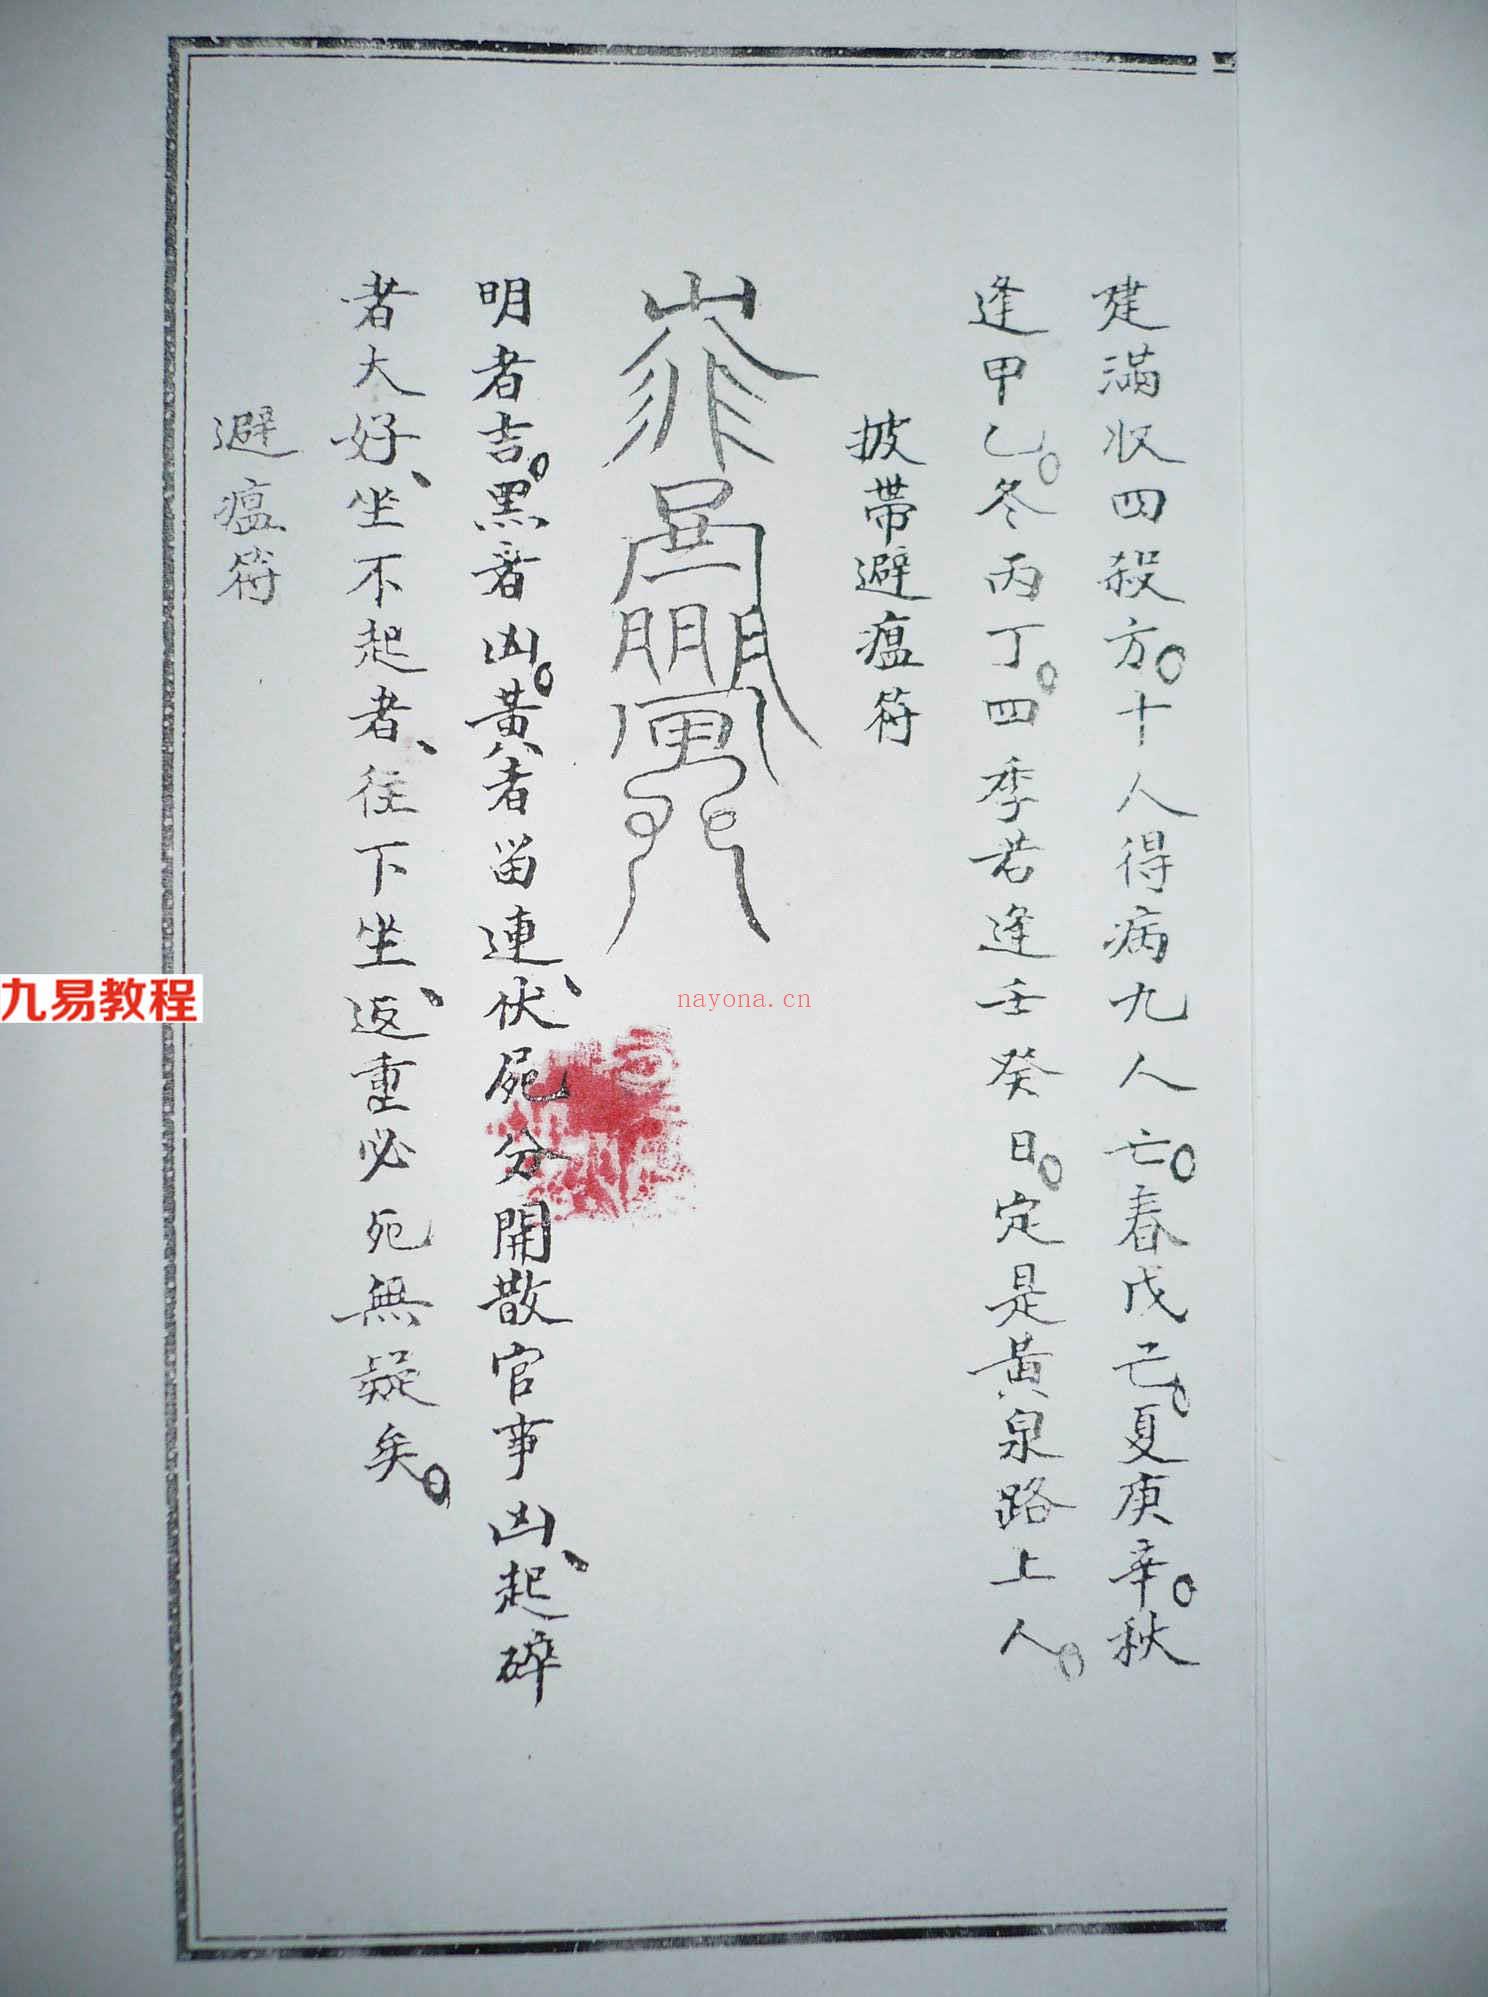 建滿收四殺方。十人得病九人亡。春戊己。夏庚辛。秋
逢甲乙。冬丙丁。四季若逢壬癸日。定是黃泉路上人。
披帶避瘟符
明者吉。黑者凶。黃者留連、伏屍分開散官事凶、起碎
者大好、坐不起者、往下坐、返重必死無疑矣。
避瘟符
九易教程
nayona.cn